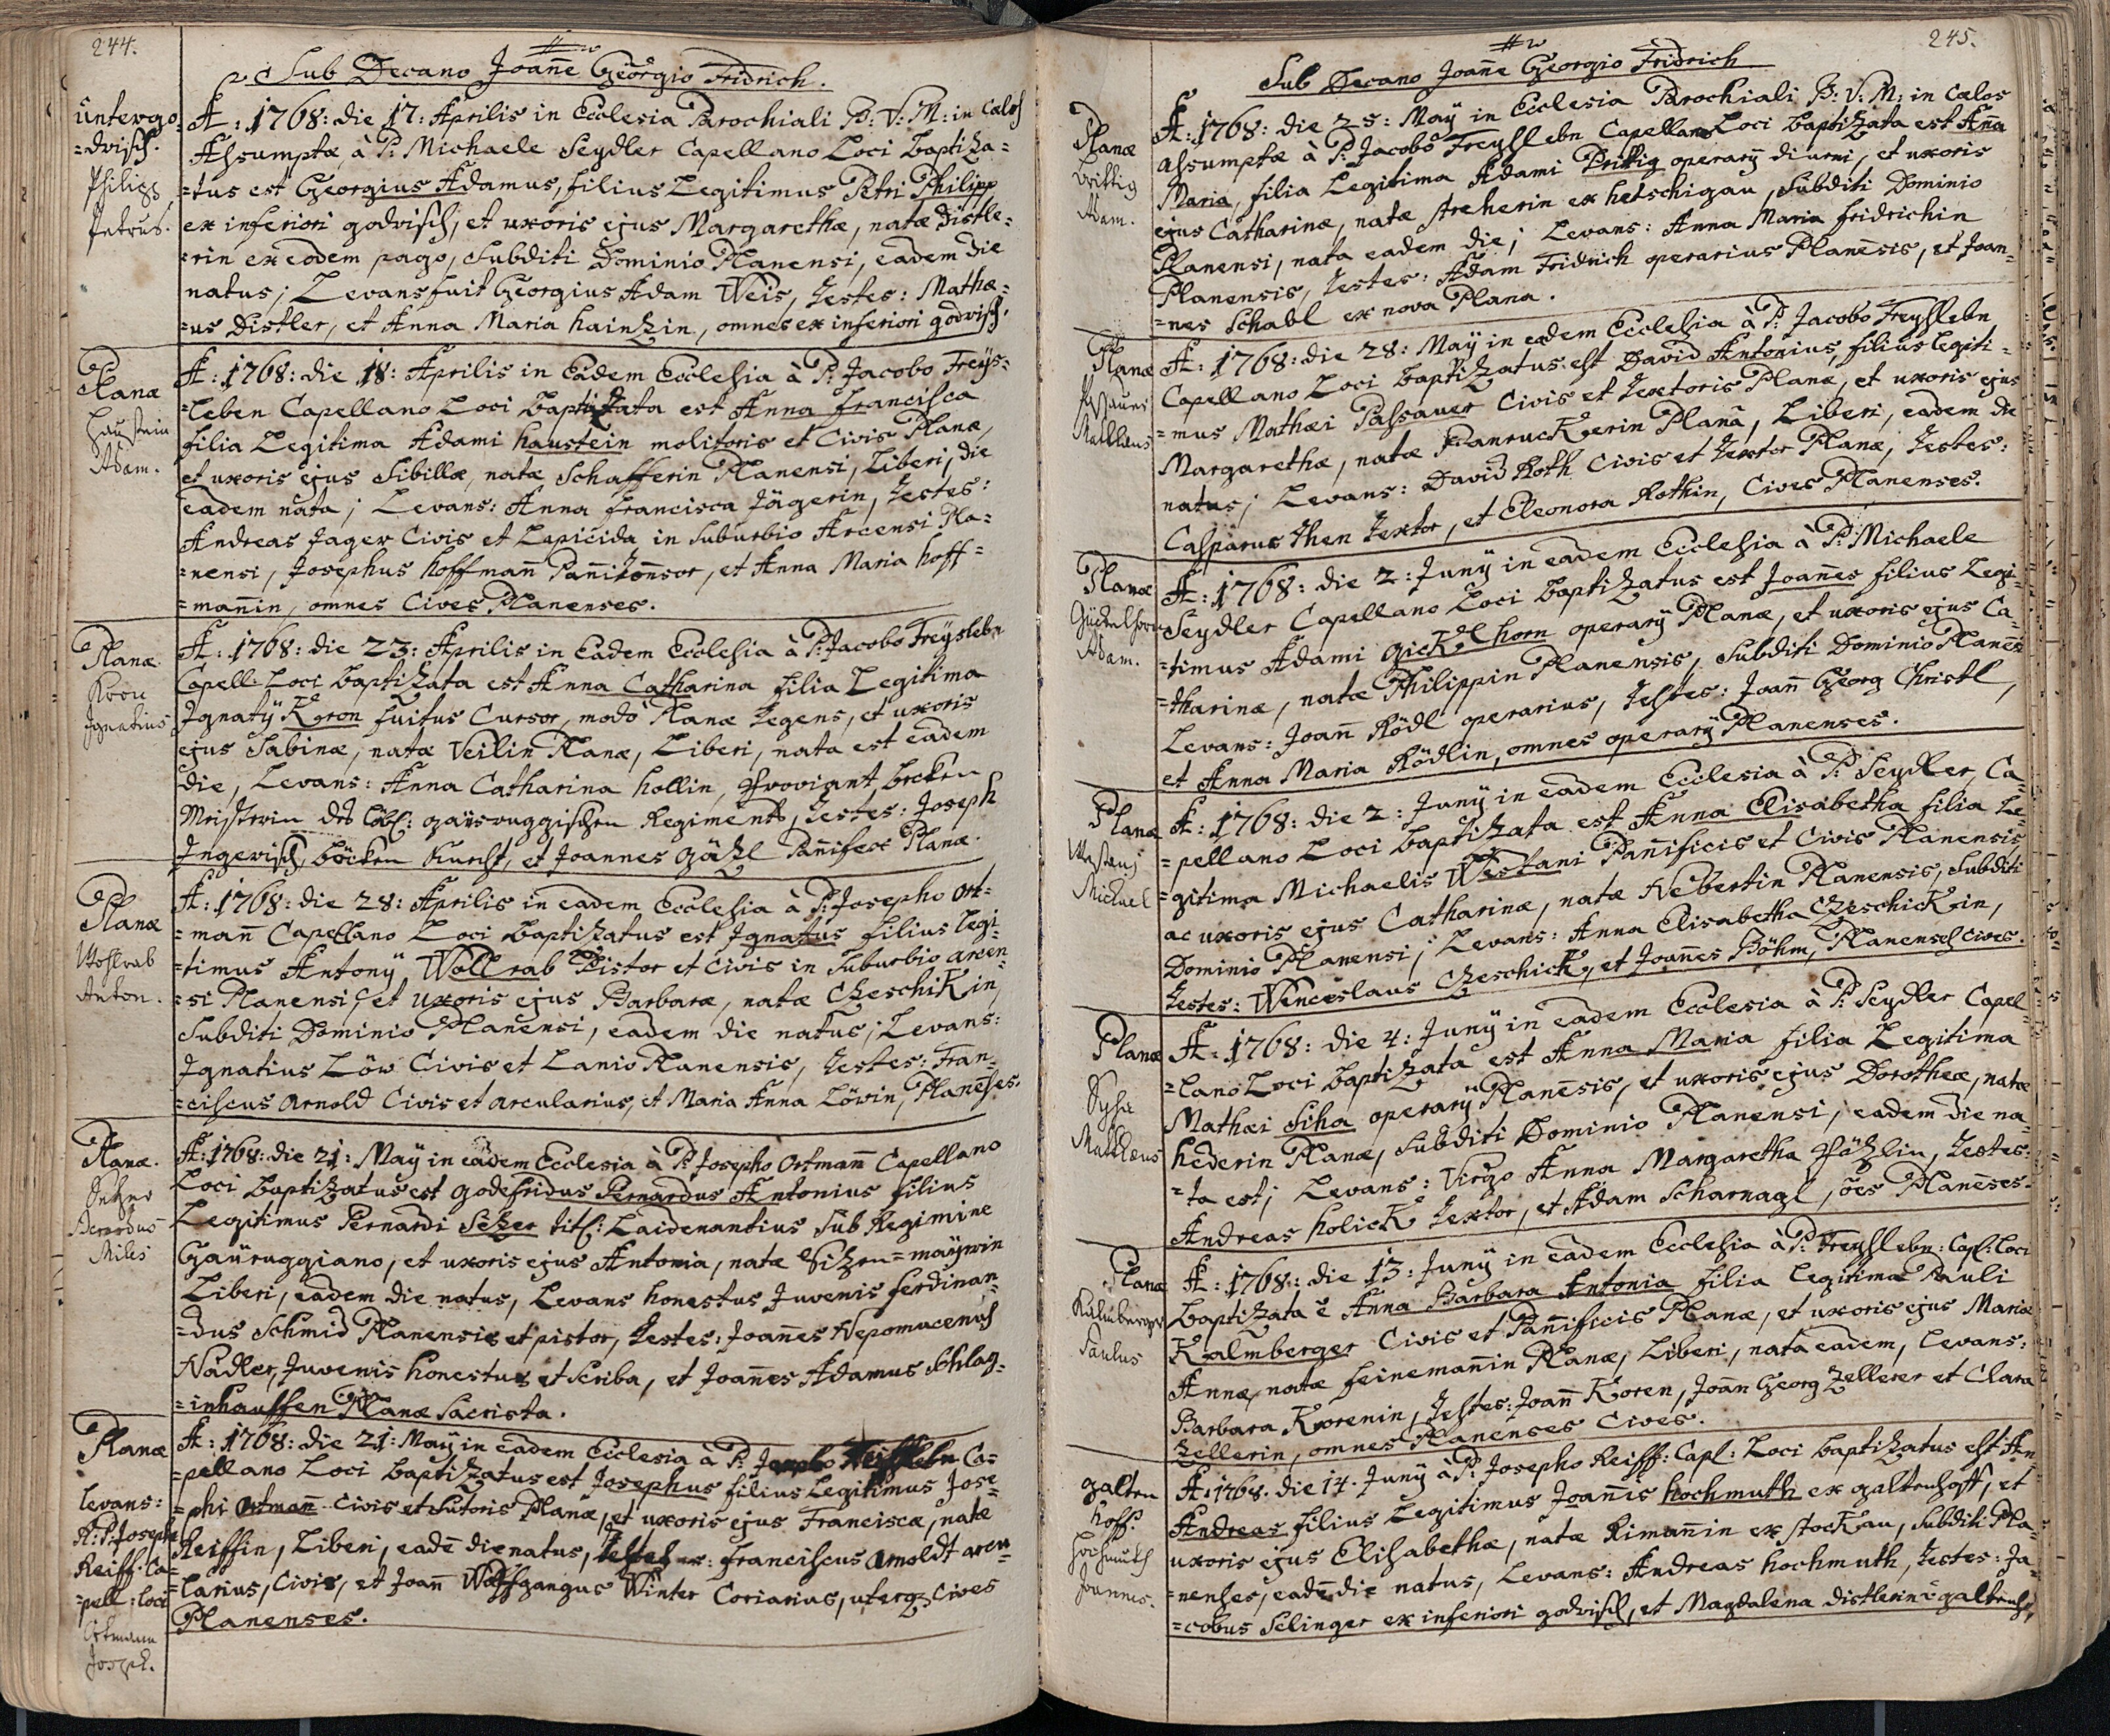 244.
Sub Decano Joañe Georgio Fridrich.
untergo=
=drisch.
Philipp
Petrus.
A: 1768: die 17: Aprilis in Ecclesia Parochiali B: V: M: in Cælos
Assumptæ, à P: Michaele Seydler Capellano Loci baptiza=
=tus est Georgius Adamus, filius Legitimus Petri Philipp
ex inferiori godrisch, et uxoris ejus Margarethæ, natæ Distle=
=rin ex eodem pago, Subditi Dominio Planensi, eadem die
natus; Levans fuit Georgius Adam Weis, Testes: Mathæ=
=us Distler, et Anna Maria hainzin, omnes ex inferiori godrisch.
Planæ
Haustein
Adam.
A: 1768: die 18: Aprilis in Eadem Ecclesia à P: Jacobo Freys=
=leben Capellano Loci baptizata est Anna Francisca
filia Legitima Adami haustein molitoris et Civis Planæ,
et uxoris ejus Sibillæ, natæ Schafferin Planensi, Liberi, die
eadem nata; Levans: Anna Francisca Jägerin, Testes:
Andreas Jager Civis et Lapicida in Suburbio Arcensi Pla=
=nensi, Josephus hoffmañ Pañitonsor, et Anna Maria hoff=
=mañin, omnes Cives Planenses.
Planæ
Kron
Ignatius
A: 1768: die 23: Aprilis in Eadem Ecclesia à P: Jacobo Freyslebn
Capell: Loci baptizata est Anna Catharina filia Legitima
Ignatÿ Kron fuitus Cursor, modò Planæ degens, et uxoris
ejus Sabinæ, natæ Veilin Planæ, Liberi, nata est eadem
die, Levans: Anna Catharina hollin, Proviant becken
Meisterin des Löbl: gaÿsruggischen Regiments, Testes: Joseph
Ingerisch, böcken Knecht, et Joannes Gäzl Pañifex Planæ.
Planæ
Wohlrab
Anton.
A: 1768: die 28: Aprilis in eadem Ecclesia à P: Josepho Ort=
=mañ Capellano Loci baptizatus est Ignatius filius Legi=
=timus Antonÿ Wollrab Pistor et Civis in Suburbio arcen=
=si Planensi, et uxoris ejus Barbaræ, natæ CzeschiKin,
Subditi Dominio Planensi, eadem die natus; Levans:
Ignatius Löw Civis et Lanio Planensis, Testes: Fran=
=ciscus Arnold Civis et arcularius, et Maria Anna Löwin, Planeses.
Planæ.
Setzer
Bernardus
Miles
A: 1768: die 21: Maÿ in eadem Ecclesia à P: Josepho Ortmañ Capellano
Loci baptizatus est godefridus Bernardus Antonius filius
Legitimus Bernardi Sezer titl: Laidenantius Sub Regimine
Gaÿruggiano, et uxoris ejus Antonia, natæ =maÿrin
Liberi, eadem die natus, Levans honestus Juvenis Ferdinan=
=dus Schmid Planensis et pistor, Testes: Joañes Nepomucenus
Nadler, Juvenis honestus et Scriba, et Joañes Adamus Schlag=
=inhauffen Planæ Sacrista.
Planæ
Levans:
R: P: Joseph
Reiff: Ca=
=pell: loci
Ortmann
Joseph.
A: 1768: die 21: Maÿ in eadem Ecclesia à P: Ca=
=pellano Loci baptizatus est Josephus filius Legitimus Jose=
=phi Ortmañ Civis et Sutoris Planæ, et uxoris ejus Franciscæ, natæ
Reiffin, Liberi, eadē die natus, Testes: Franciscus Arnoldt arcu=
=larius, Civis, et Joañ Wolffgangus Winter Coriarius, uterq Cives
Planenses.
245.
Sub Decano Joañe Georgio Fridrich
Planæ
Brittig
Adam.
A: 1768: die 25: Maÿ in Ecclesia Parochiali B: V: M: in Cælos
assumptæ à P: Jacobo Freyslebn Capellano Loci baptizata est Aña
Maria, filia Legitima Adami Prittig operarÿ diurni, et uxoris
ejus Catharinæ, natæ streherin ex hetschigau, Subditi Dominio
Planensi, nata eadem die; Levans: Anna Maria Fridrichin
Planensis, Testes: Adam Fridrich operarius Planēsis, et Joan=
=nes Schabl ex nova Plana.
Planæ
Passauer
Mathæus
A: 1768: die 28: Maÿ in eadem Ecclesia à P: Jacobo Freyslebn
Capellano Loci baptizatus est David Antonius, filius Legiti=
=mus Mathæi Passauer Civis et Textoris Planæ, et uxoris ejus
Margarethæ, natæ PanrucKerin Planā, Liberi, eadem die
natus; Levans: David Roth Civis et Textor Planæ, Testes:
Casparus Then Textor, et Eleonora Rothin, Cives Planenses.
Planæ
Gückelhorn
Adam.
A: 1768: die 2: Junÿ in eadem Ecclesia à P: Michaele
Seydler Capellano Loci baptizatus est Joañes filius Legi=
=timus Adami gicKelhorn operarÿ Planæ, et uxoris ejus Ca=
=tharinæ, natæ Philippin Planensis, Subditi Dominio Planēsi
Levans: Joañ Rödl operarius, Testes: Joañ Georg Christl,
et Anna Maria Rödlin, omnes operarÿ Planenses.
Planæ
Westani
Michael
A: 1768: die 2: Junÿ in eadem Ecclesia à P: Seydler, Ca=
=pellano Loci baptizata est Anna Elisabetha filia Le=
=gitima Michaelis Westani Pañificis et Civis Planensis
ac uxoris ejus Catharinæ, natæ Nebertin Planensis, Subditi
Dominio Planensi; Levans: Anna Elisabetha CzeschicKin,
Testes: Wenceslaus CzeschicK, et Joañes Böhm, Planenses Cives.
Planæ
Syha
Mathæus
A: 1768: die 4: Junÿ in eadem Ecclesia à P: Seydler Capel=
=lano Loci baptizata est Anna Maria filia Legitima
Mathæi Siha operarÿ Planēsis, et uxoris ejus Dorotheæ, natæ
hederin Planæ, Subditi Dominio Planensi, eadem die na=
=ta est; Levans: Virgo Anna Margaretha Päzlin, Testes:
Andreas holicK Textor, et Adam Scharnagl, ões Planēses.
Planæ
Kalmberger
Paulus
A: 1768: die 13: Junÿ in eadem Ecclesia à P: Freyslebn: Capl: Loci
baptizata ē Anna Barbara Antonia filia Legitima Pauli
Kalmberger Civis et Pañificis Planæ, et uxoris ejus Mariæ
Annæ, natæ Feinemañin Planæ, Liberi, nata eadem, Levans:
Barbara Korenin, Testes: Joañ Koren, Joañ Georg Zellerer et Clara
Zellerin, omnes Planenses Cives.
galten
hoff.
Hochmuth
Joannes.
A: 1768. die 14. Junÿ à P: Josepho Reiff: Capl: Loci baptizatus est An=
Andreas filius Legitimus Joañis hochmuth ex galtenhoff, et
uxoris ejus Elisabethæ, natæ Rimañin ex stocKau, Subditi Pla=
=nenses, eadē die natus, Levans: Andreas hochmuth, Testes: Ja=
=cobus Selinger ex inferiori godrisch, et Magdalena distlerin ē galtenh,